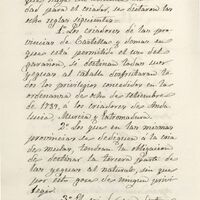 dad para el criador, se dictaron las
ocho reglas siguientes:
1.ª Los criadores de las pro-
vincias de Castilla y demas en
que está permitido el uso del
garañon, si destinan todas sus
yeguas al caballo disfrutarán
de los privilegios concedidos en la
ordenanza de ocho de setiembre
de 1789, a los criadores de Anda-
lucia, Murcia y Extremadura.
2.ª Los que en las mismas
provincias se dediquen a la cria
de mulas, tendran la obligacion
de destinar la tercera parte de
las yeguas al natural, sin que
por esto goce de ningun privi-
legio.
3.ª